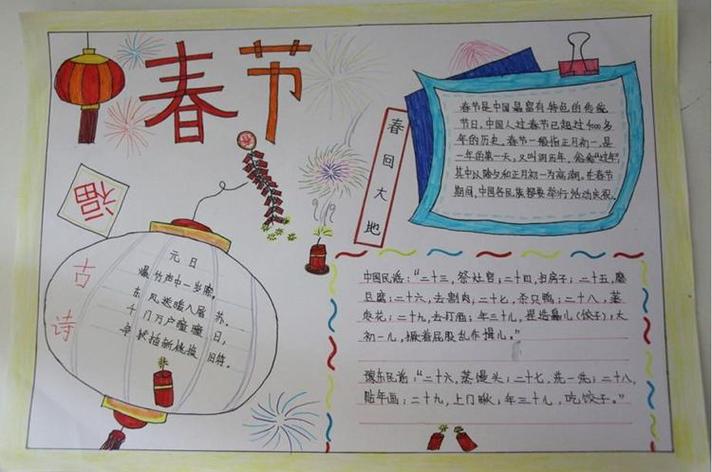 春节
春节是中国最富有特色的传统
节日,中国人过春节已超过4000多
年的历史,春节一般指正月初一,是
一年的第一天,又叫阴历年,俗称“过年”
其中以除夕和正月初一为高潮,在春节
期间,中国各民族都要举行活动庆祝.
春回大地
福
古诗
元日
爆竹声中一岁除,
东风送暖入屠苏.
千门万户曈曈日,
新桃换旧符.
中国民谣:“二十三,祭灶官;二十四,扫房子;二十五,磨
豆腐;二十六,去割肉,二十七,杀只鸡;二十八,蒸
枣花;二十九,去打酒;年三十儿,捏造鼻儿(饺子);大
初一儿,撅着屁股乱作揖儿。”
豫东民谣:“二十六,蒸馒头;二十七,洗一洗;二十八,
贴年画;二十九,上门瞅;年三十儿,吃饺子。”